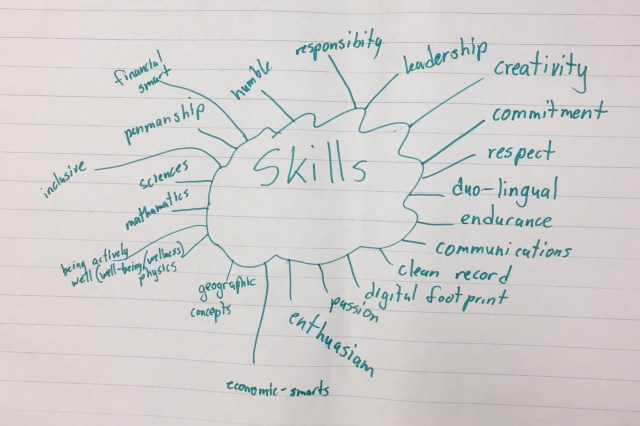 Skills
responsibity
leadership
creativity
commitment
respect
duo-lingual
endurance
communications
clean record
digital footprint
passion
enthuasiam
economic-smarts
geographic
concepts
being actively
well (well-being/wellness)
physics
mathematics
sciences
inclusive
penmanship
financial
smart
humble